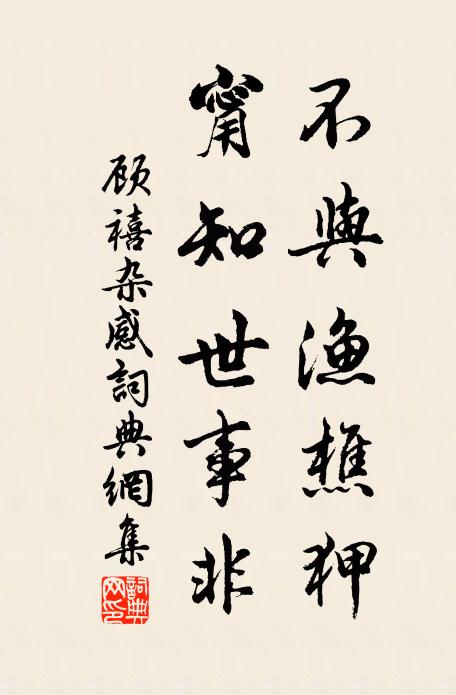 不與漁樵狎
甯知世事非
顾禧杂感詞典網集
詞典网印